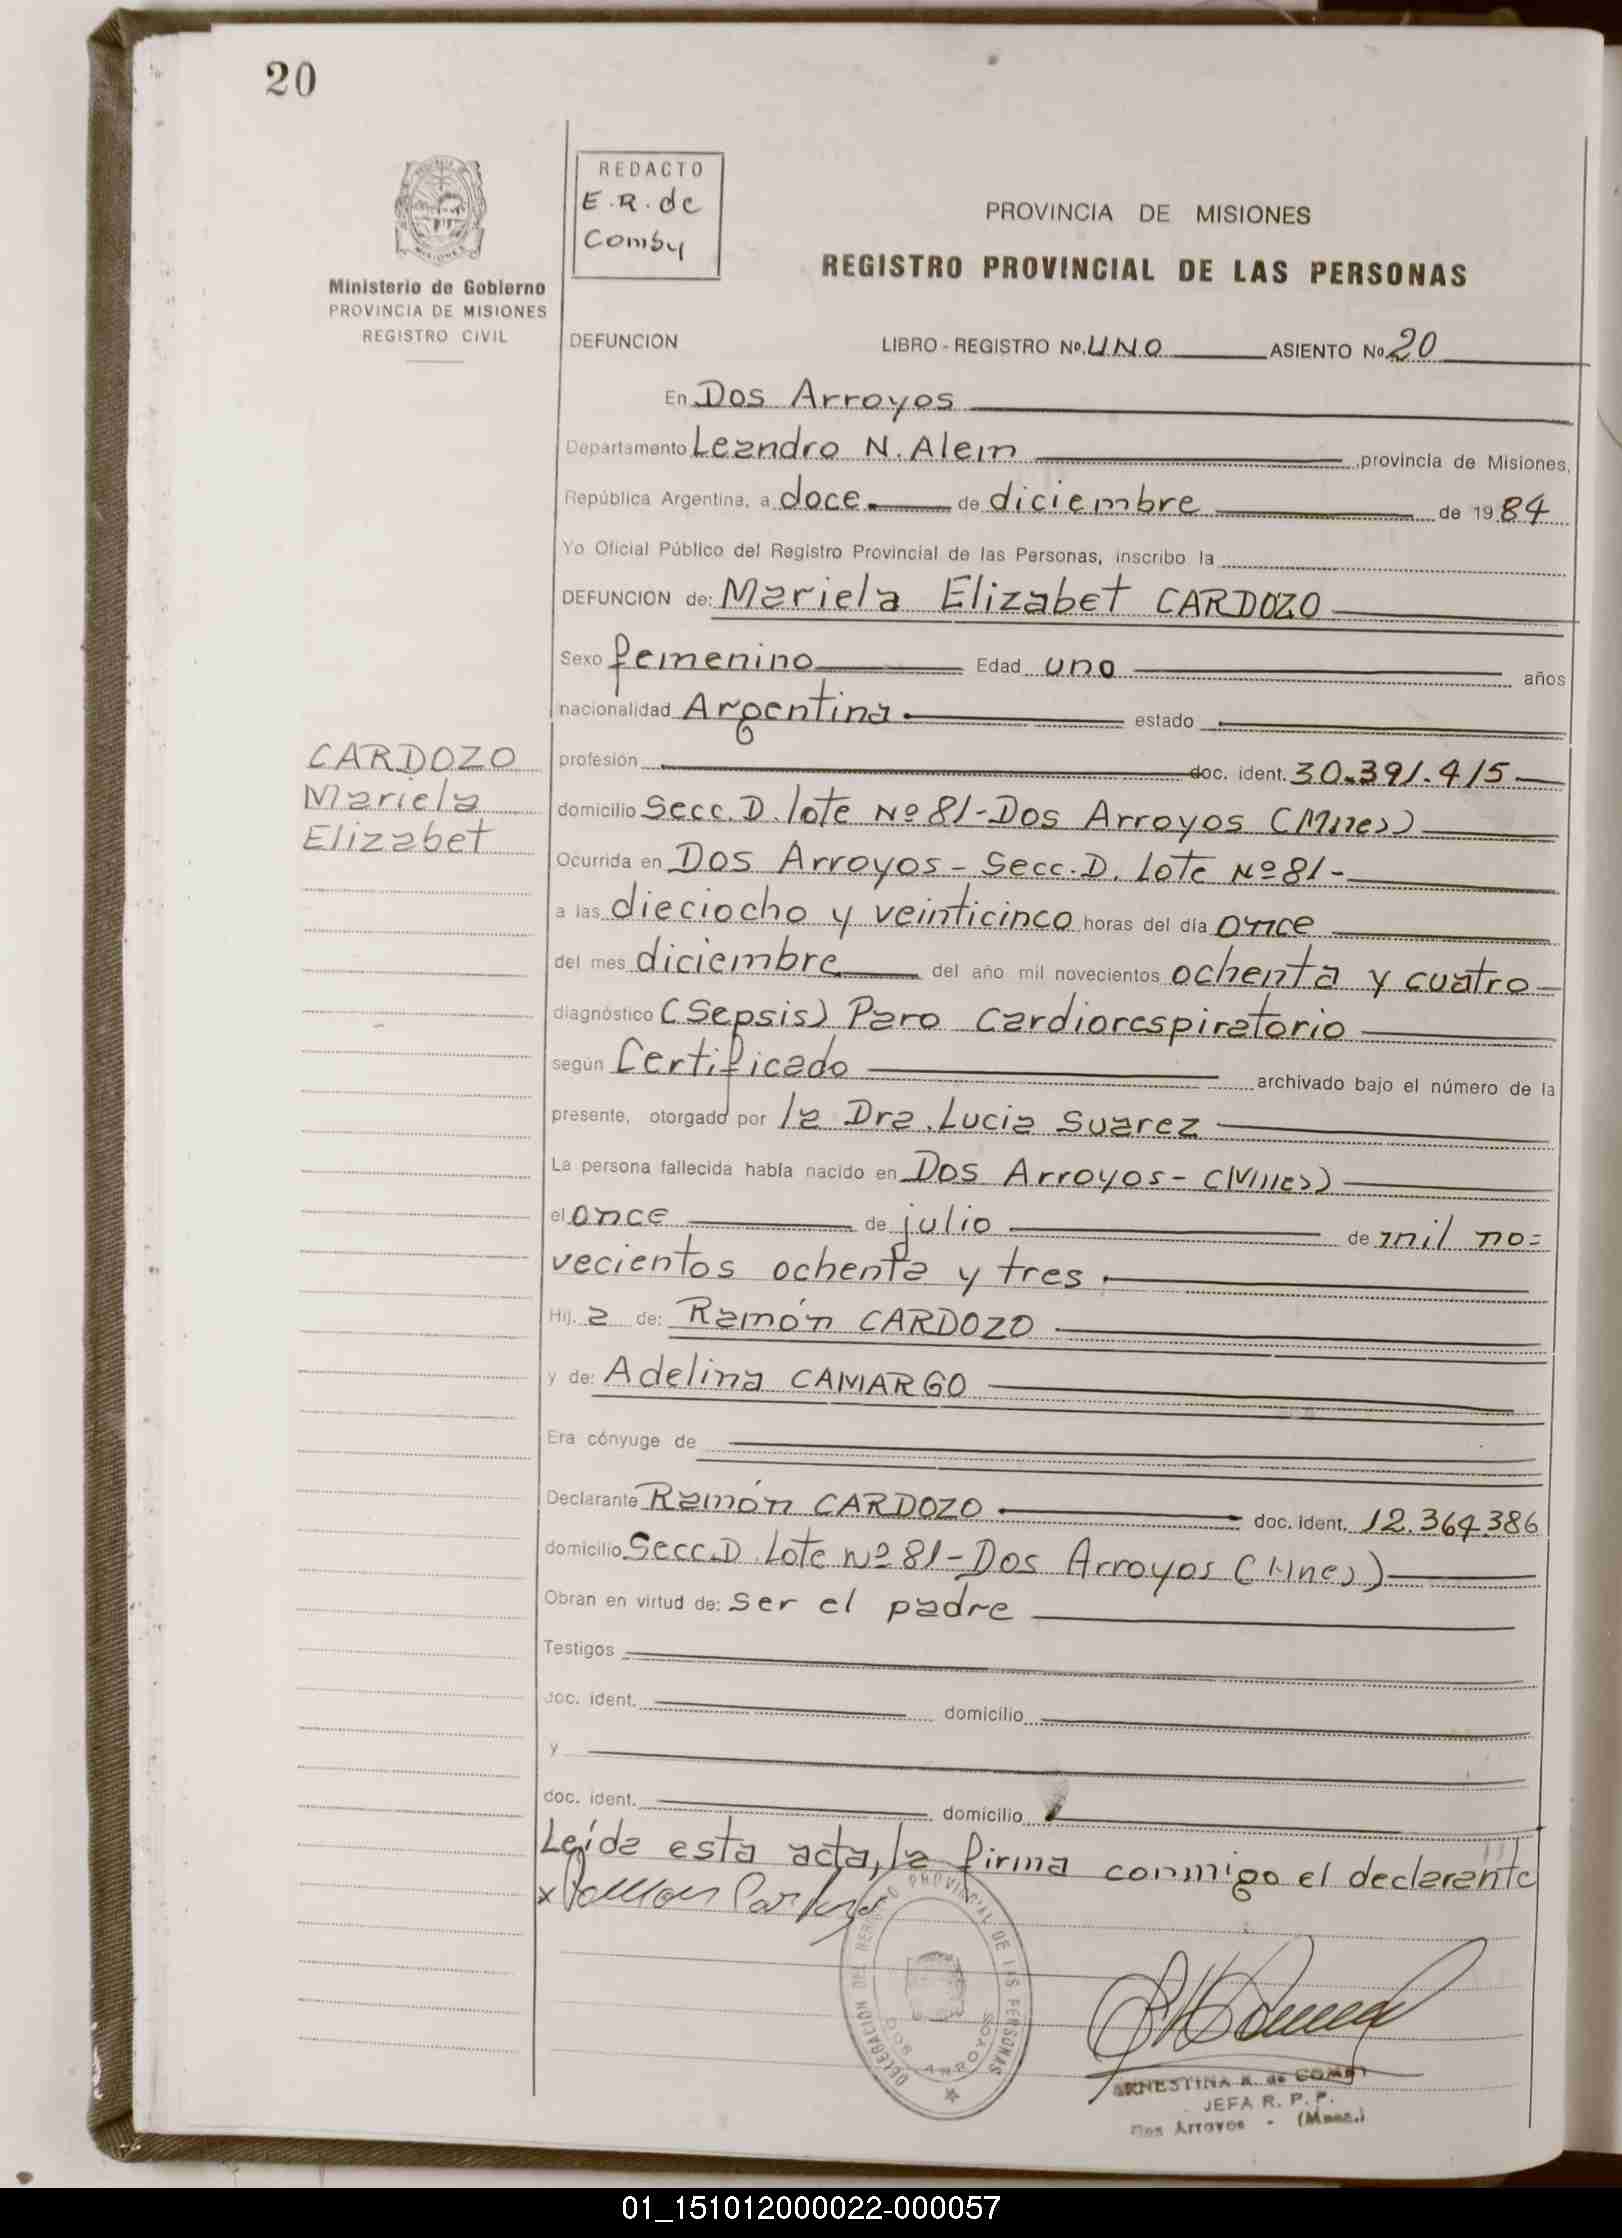 20
MISIONES
Ministerio de Gobierno
PROVINCIA DE MISIONES
REGISTRO CIVIL
REDACTO
E.R. de
Comby
PROVINCIA DE MISIONES
REGISTRO PROVINCIAL DE LAS PERSONAS
DEFUNCION LIBRO - REGISTRO Nº. UNO ASIENTO Nº 20
En Dos Arroyos
Departamento Leandro N. Alem provincia de Misiones,
República Argentina, a doce de diciembre de 1984
Yo Oficial Público del Registro Provincial de las Personas, inscribo la
DEFUNCION de: Mariela Elizabet CARDOZO
Sexo femenino Edad uno años
nacionalidad Argentina estado
CARDOZO
Mariela
Elizabet
profesión doc. ident. 30.391.415
domicilio Secc. D. lote Nº 81-Dos Arroyos (Mnes)
Ocurrida en Dos Arroyos - Secc. D. Lote Nº 81-
a las dieciocho y veinticinco horas del día once
del mes diciembre del año mil novecientos ochenta y cuatro
diagnóstico (Sepsis) Paro Cardiorespiratorio
según Certificado archivado bajo el número de la
presente, otorgado por la Dra. Lucia Suarez
La persona fallecida había nacido en Dos Arroyos - (Mnes)
el once de julio de mil no=
vecientos ochenta y tres.
Hij. a de: Ramón CARDOZO
y de: Adelina CAMARGO
Era cónyuge de
Declarante Ramón CARDOZO doc. ident. 12.364.386
domicilio Secc. D. Lote Nº 81-Dos Arroyos (Mnes)
Obran en virtud de: Ser el padre
Testigos
doc. ident. domicilio
y
doc. ident. domicilio
Leída esta acta, la firma conmigo el declarante
x
DELEGACION DEL REGISTRO PROVINCIAL DE LAS PERSONAS
DOS ARROYOS
ERNESTINA R. de COMBY
JEFA R. P. P.
Dos Arroyos - (Mnes.)
01_151012000022-000057